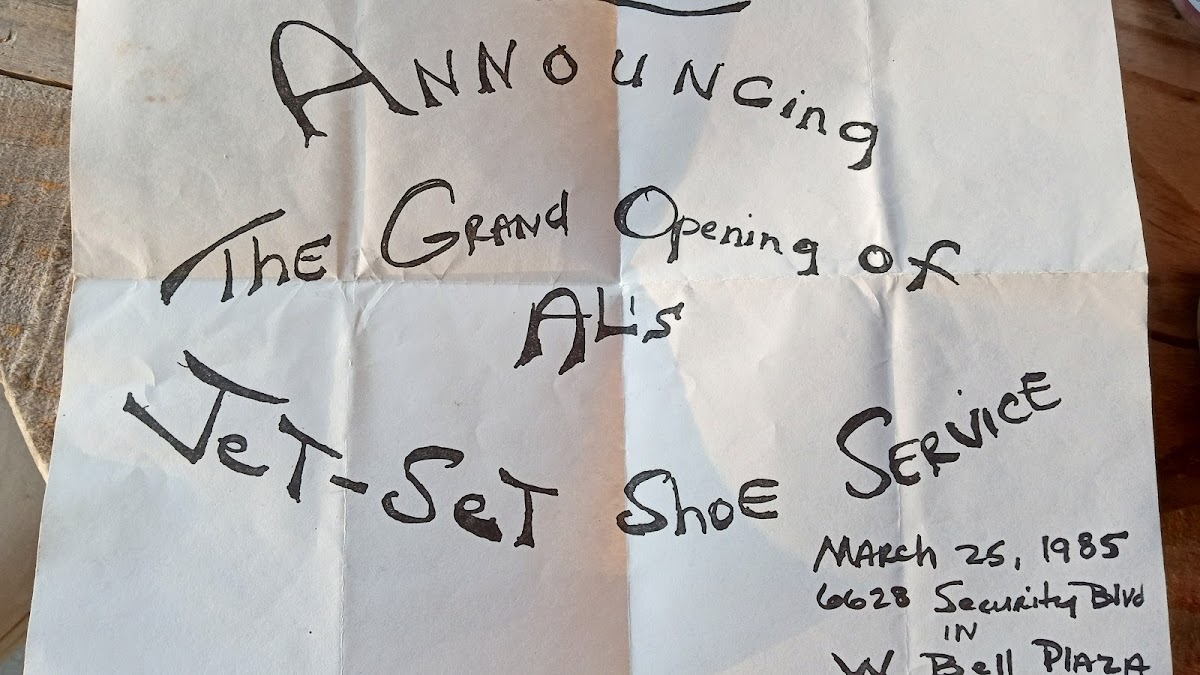 ANNOUNCing
ThE GRANd Opening of
AL's
JeT-SeT ShoE SERViCE
MARch 25, 1985
6628 Security Blvd
IN
W Bell PLAZA